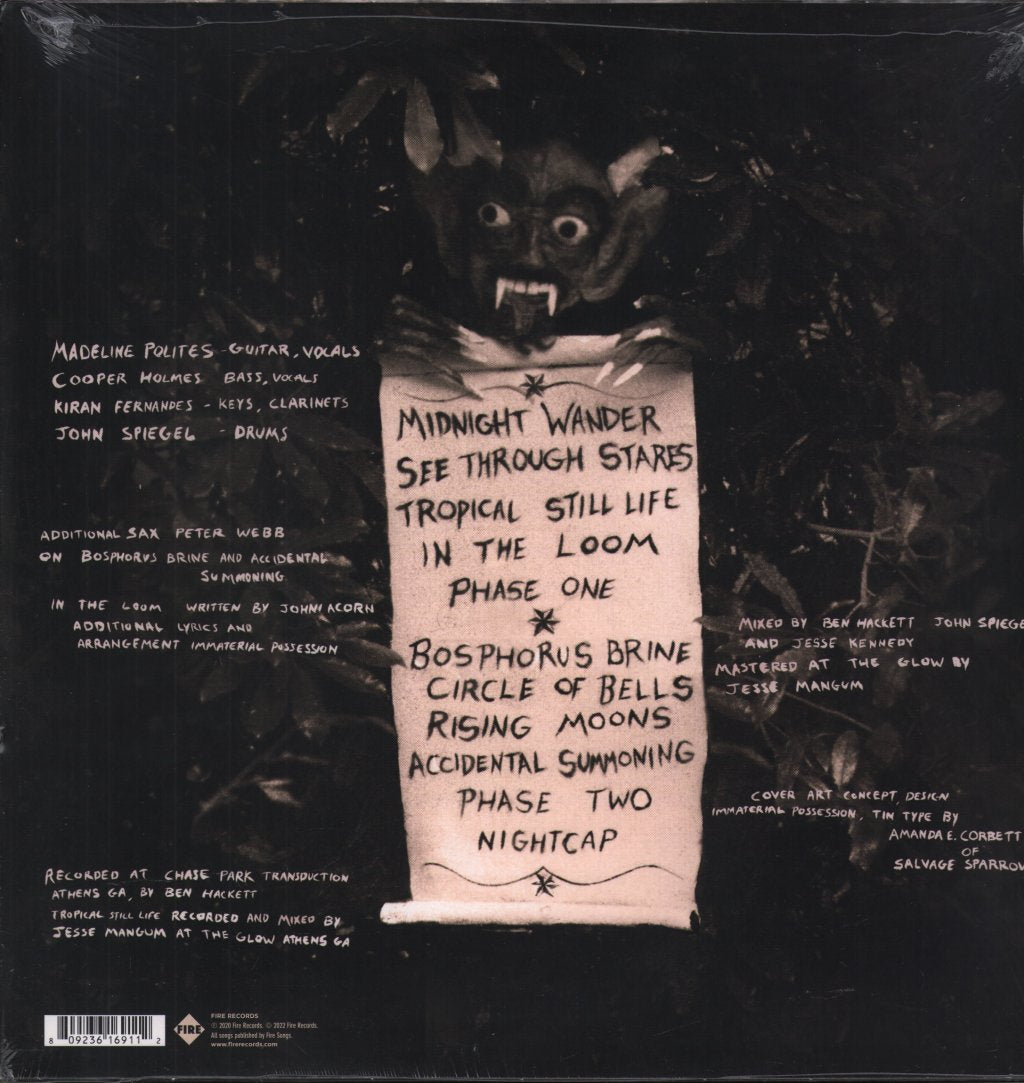 MADELINE POLITES - GUITAR, VOCALS
COOPER HOLMES BASS, VOCALS
KIRAN FERNANDES - KEYS, CLARINETS
JOHN SPIEGEL - DRUMS
ADDITIONAL SAX PETER WEBB
ON BOSPHORUS BRINE AND ACCIDENTAL
SUMMONING
IN THE LOOM WRITTEN BY JOHN ACORN
ADDITIONAL LYRICS AND
ARRANGEMENT IMMATERIAL POSSESSION
RECORDED AT CHASE PARK TRANSDUCTION
ATHENS GA, BY BEN HACKETT
TROPICAL STILL LIFE RECORDED AND MIXED BY
JESSE MANGUM AT THE GLOW ATHENS GA
MIDNIGHT WANDER
SEE THROUGH STARES
TROPICAL STILL LIFE
IN THE LOOM
PHASE ONE
BOSPHORUS BRINE
CIRCLE OF BELLS
RISING MOONS
ACCIDENTAL SUMMONING
PHASE TWO
NIGHTCAP
MIXED BY BEN HACKETT JOHN SPIEGE
AND JESSE KENNEDY
MASTERED AT THE GLOW BY
JESSE MANGUM
COVER ART CONCEPT, DESIGN
IMMATERIAL POSSESSION, TIN TYPE BY
AMANDA E. CORBETT
OF
SALVAGE SPARROW
8 09236 16911 2
FIRE
FIRE RECORDS
℗ 2020 Fire Records. © 2022 Fire Records.
All songs published by Fire Songs.
www.firerecords.com